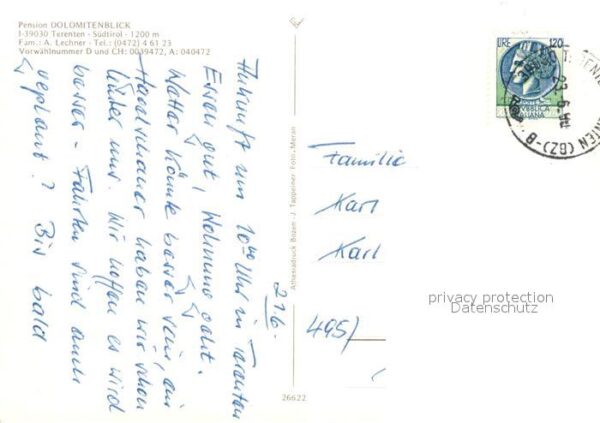 Pension DOLOMITENBLICK
I-39030 Terenten - Südtirol - 1200 m
Fam.: A. Lechner - Tel.: (0472) 4 61 23
Vorwählnummer D und CH: 0039472, A: 040472
21.6.
Ankunft um 10 00 Uhr in Terenten
Essen gut, Wohnung acht.
Wetter könnte besser sein, ein
haben wir schon
hinter uns. Wir hoffen es wird
besser - Fahrten sind auch
geplant? Bis bald
Athesiadruck Bozen - J. Tappeiner Foto, Meran
26622
LIRE 120
REPUBBLICA
ITALIANA
23.6.
(BZ)-B
Familie
Karl
Karl
495/
privacy protection
Datenschutz